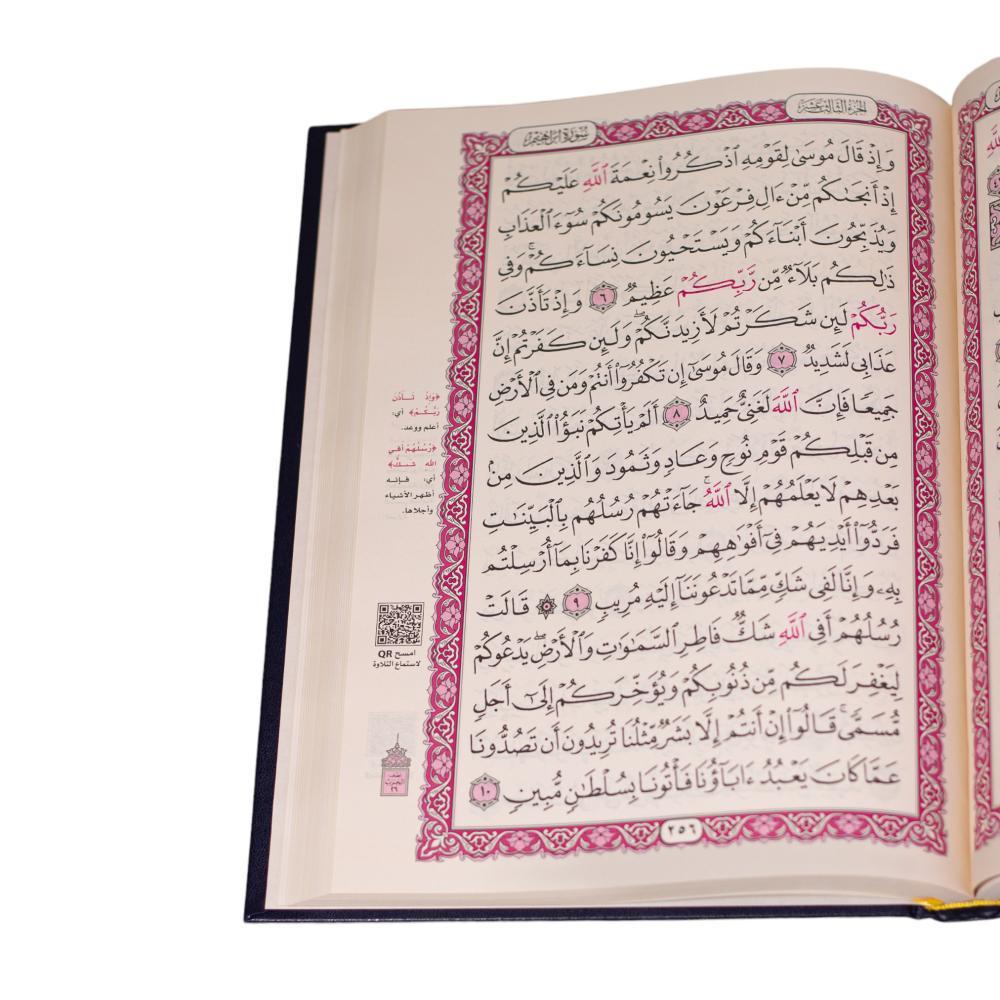 الجزء الثالث عشر
سورة إبراهيم
وَإِذْ قَالَ مُوسَىٰ لِقَوْمِهِ ٱذْكُرُوا۟ نِعْمَةَ ٱللَّهِ عَلَيْكُمْ
إِذْ أَنجَىٰكُم مِّنْ ءَالِ فِرْعَوْنَ يَسُومُونَكُمْ سُوٓءَ ٱلْعَذَابِ
وَيُذَبِّحُونَ أَبْنَآءَكُمْ وَيَسْتَحْيُونَ نِسَآءَكُمْ ۚ وَفِى
ذَٰلِكُم بَلَآءٌ مِّن رَّبِّكُمْ عَظِيمٌ ٦ وَإِذْ تَأَذَّنَ
رَبُّكُمْ لَئِن شَكَرْتُمْ لَأَزِيدَنَّكُمْ ۖ وَلَئِن كَفَرْتُمْ إِنَّ
عَذَابِى لَشَدِيدٌ ٧ وَقَالَ مُوسَىٰٓ إِن تَكْفُرُوٓا۟ أَنتُمْ وَمَن فِى ٱلْأَرْضِ
جَمِيعًا فَإِنَّ ٱللَّهَ لَغَنِىٌّ حَمِيدٌ ٨ أَلَمْ يَأْتِكُمْ نَبَؤُا۟ ٱلَّذِينَ
مِن قَبْلِكُمْ قَوْمِ نُوحٍ وَعَادٍ وَثَمُودَ وَٱلَّذِينَ مِنۢ
بَعْدِهِمْ لَا يَعْلَمُهُمْ إِلَّا ٱللَّهُ ۚ جَآءَتْهُمْ رُسُلُهُم بِٱلْبَيِّنَٰتِ
فَرَدُّوٓا۟ أَيْدِيَهُمْ فِىٓ أَفْوَٰهِهِمْ وَقَالُوٓا۟ إِنَّا كَفَرْنَا بِمَآ أُرْسِلْتُم
بِهِۦ وَإِنَّا لَفِى شَكٍّ مِّمَّا تَدْعُونَنَآ إِلَيْهِ مُرِيبٍ ٩ ۞ قَالَتْ
رُسُلُهُمْ أَفِى ٱللَّهِ شَكٌّ فَاطِرِ ٱلسَّمَٰوَٰتِ وَٱلْأَرْضِ ۖ يَدْعُوكُمْ
لِيَغْفِرَ لَكُم مِّن ذُنُوبِكُمْ وَيُؤَخِّرَكُمْ إِلَىٰٓ أَجَلٍ
مُّسَمًّى ۚ قَالُوٓا۟ إِنْ أَنتُمْ إِلَّا بَشَرٌ مِّثْلُنَا تُرِيدُونَ أَن تَصُدُّونَا
عَمَّا كَانَ يَعْبُدُ ءَابَآؤُنَا فَأْتُونَا بِسُلْطَٰنٍ مُّبِينٍ ١٠
٢٥٦
﴿وَإِذْ تَأَذَّنَ
رَبُّكُمْ﴾ أي:
أعلم ووعد.
﴿رُسُلُهُمْ أَفِي
اللَّهِ شَكٌّ﴾
أي: فإنه
أظهر الأشياء
وأجلاها.
امسح QR
لاستماع التلاوة
نصف
الحزب
٢٦